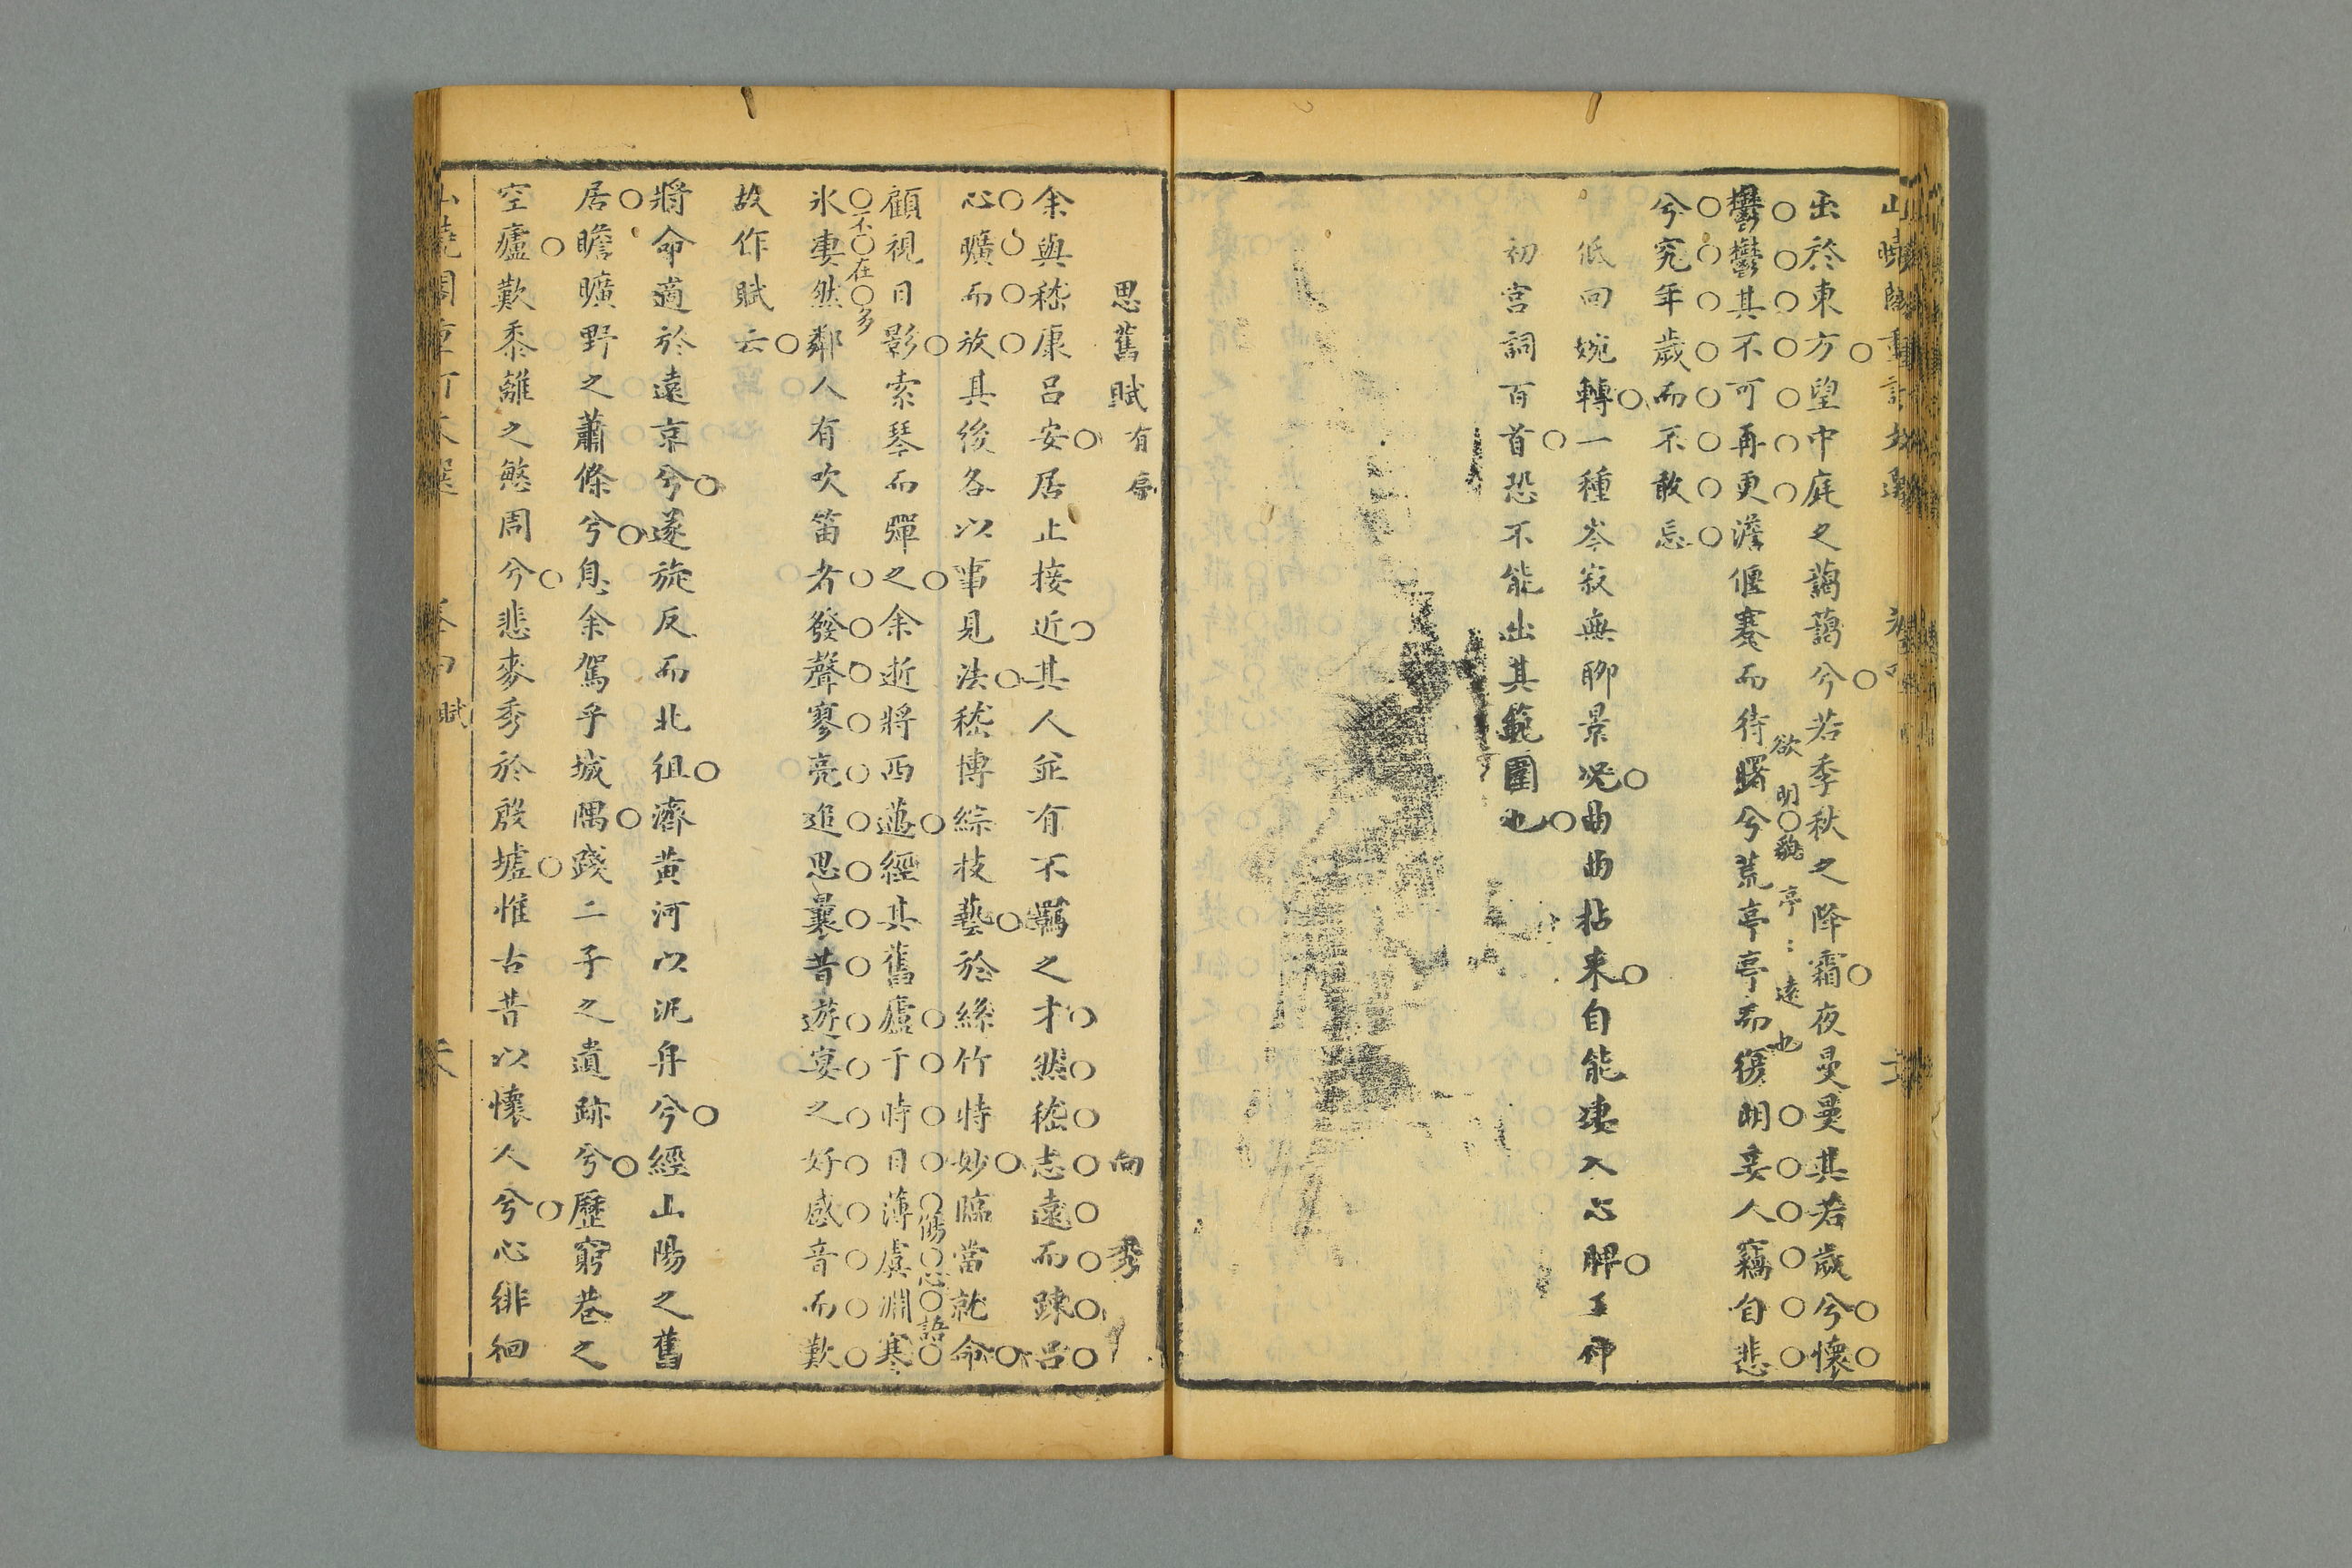 出於東方望中庭之藹藹兮若季秋之降霜夜曼曼其若歲兮懷
欲明貌 亭:遠也
鬱鬱其不可再更澹偃蹇而待曙兮荒亭亭而復明妾人竊自悲
兮究年歲而不敢忘
低回婉轉一種岑寂無聊景况曲曲拈来自能淒入心脾王仲
初宫詞百首恐不能出其範圍也
思舊賦 有序 向秀
余與嵇康呂安居止接近其人並有不羈之才然嵇志遠而踈呂
心曠而放其後各以事見法嵇博綜技藝於絲竹特妙臨當就命
傷心語
顧視日影索琴而彈之余逝將西邁經其舊廬于時日薄虞淵寒
不在多
氷凄然鄰人有吹笛者發聲寥亮追思曩昔遊宴之好感音而歎
故作賦云
將命適於遠京兮遂旋反而北徂濟黄河以泥舟兮經山陽之舊
居瞻曠野之蕭條兮息余駕乎城隅踐二子之遺跡兮歷窮巷之
空廬歎黍離之愍周兮悲麥秀於殷墟惟古昔以懷人兮心徘徊
賦